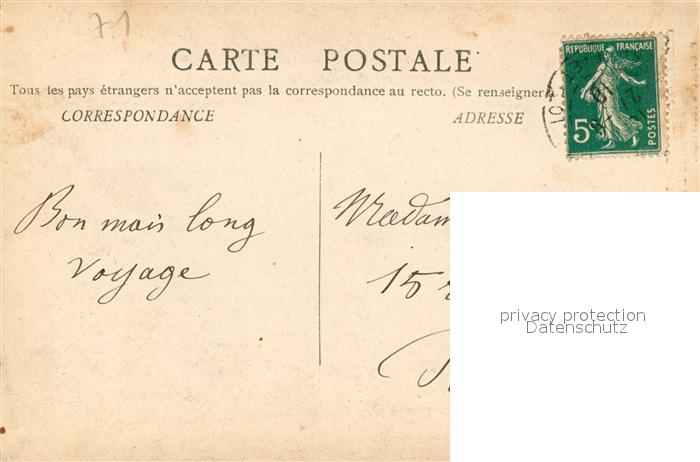 7.1
CARTE POSTALE
Tous les pays étrangers n'acceptent pas la correspondance au recto. (Se renseigner à
CORRESPONDANCE
ADRESSE
REPUBLIQUE FRANÇAISE
5c
POSTES
Bon mais long
voyage
Madam
15
privacy protection
Datenschutz